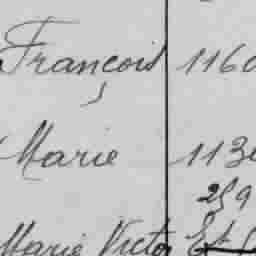 François 1160
Marie 113
259
Marie Victor Et